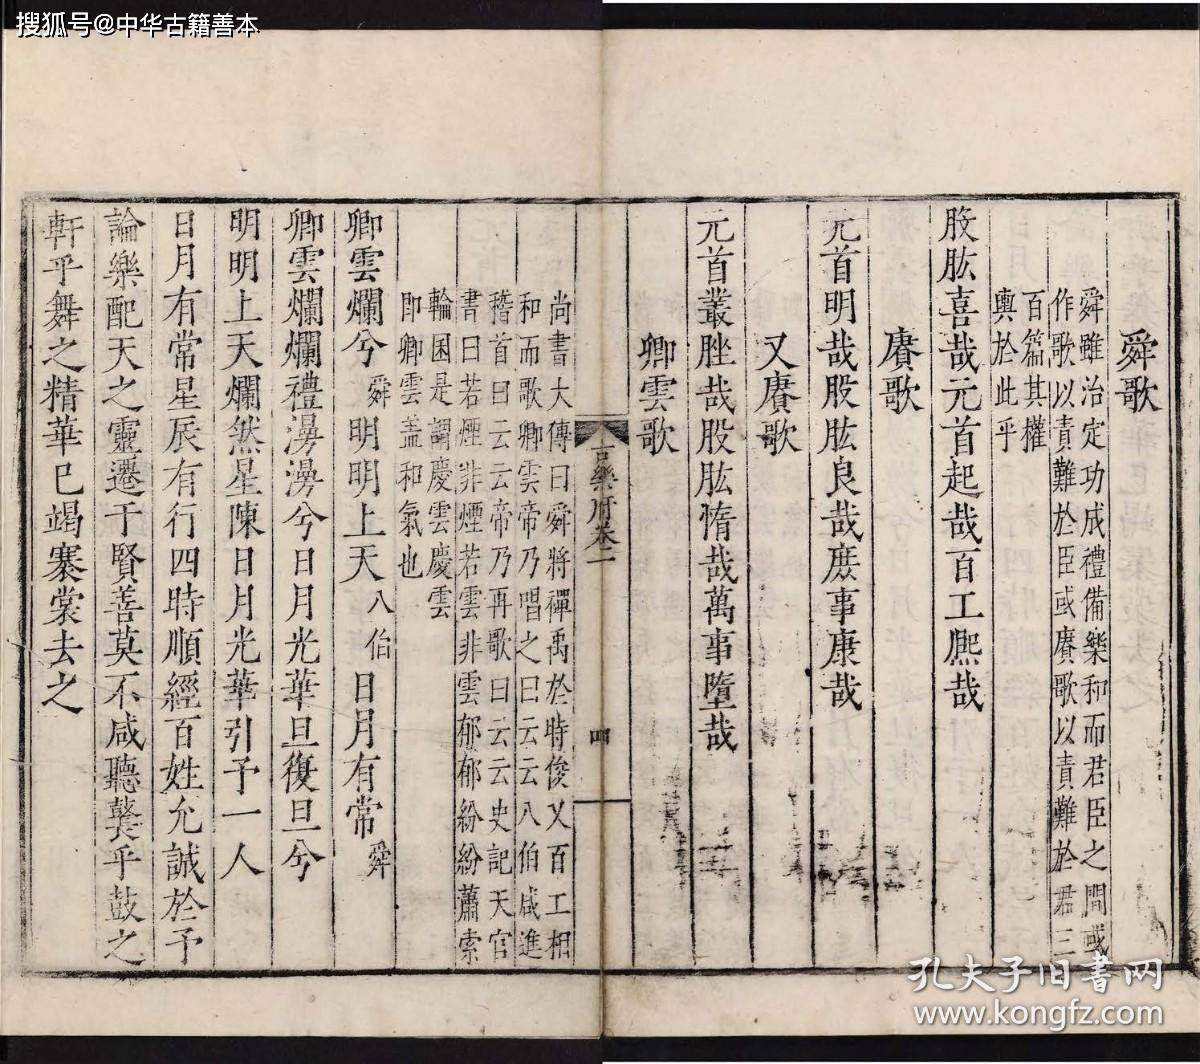 搜狐号@中华古籍善本
舜歌
舜雖治定功成禮備樂和而君臣之間或
作歌以責難於臣或賡歌以責難於君三
百篇其權
輿於此乎
股肱喜哉元首起哉百工熈哉
賡歌
元首明哉股肱良哉庶事康哉
又賡歌
元首叢脞哉股肱惰哉萬事墮哉
卿雲歌
古樂府卷二
四
尚書大傳曰舜將禪禹於時俊乂百工相
和而歌卿雲帝乃唱之曰云云八伯咸進
稽首曰云云帝乃再歌曰云云史記天官
書曰若煙非煙若雲非雲郁郁紛紛蕭索
輪囷是謂慶雲慶雲
即卿雲盖和氣也
卿雲爛兮 舜 明明上天 八伯 日月有常 舜
卿雲爛爛禮漫漫兮日月光華旦復旦兮
明明上天爛然星陳日月光華引予一人
日月有常星辰有行四時順經百姓允誠於予
論樂配天之靈遷于賢善莫不咸聽鼚乎鼓之
軒乎舞之精華已竭褰裳去之
孔夫子旧书网
www.kongfz.com